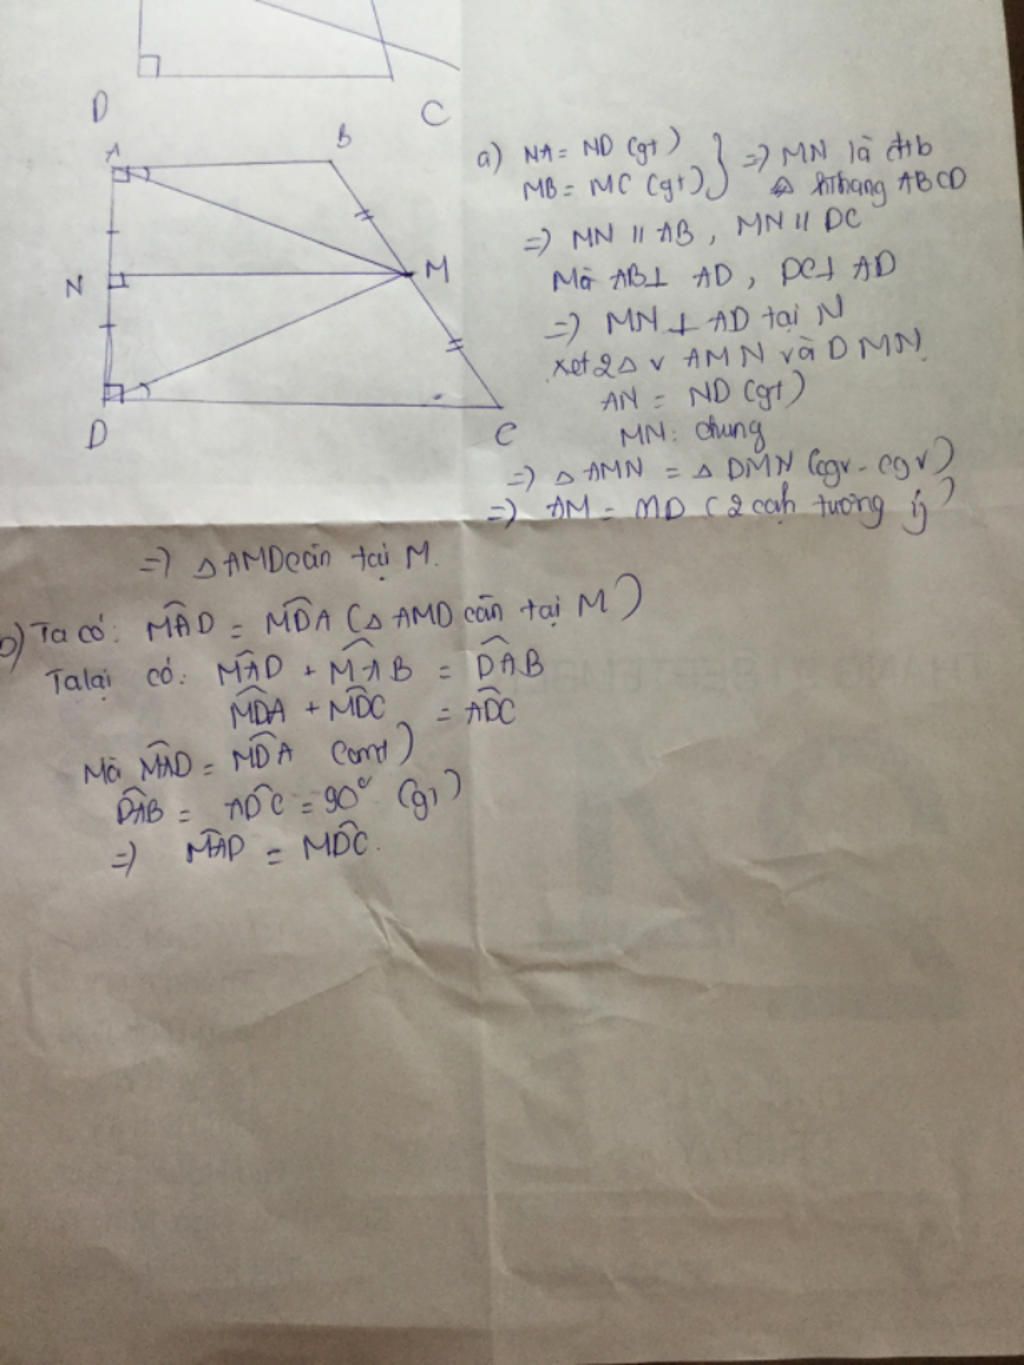 D
C
A
B
N
M
D
C
a) NA = ND (gt)
MB = MC (gt)
} => MN là đtb
hthang ABCD
=> MN // AB, MN // DC
Mà AB ⊥ AD, DC ⊥ AD
=> MN ⊥ AD tại N
xét 2 Δ v AMN và DMN
AN = ND (gt)
MN: chung
=> Δ AMN = Δ DMN (cgv - cgv)
=> AM = MD (2 cạh tương ứ)
=> Δ AMD cân tại M.
b) Ta có: M̂AD = M̂DA (Δ AMD cân tại M)
Ta lại có: M̂AD + M̂AB = D̂AB
M̂DA + M̂DC = ÂDC
Mà M̂AD = M̂DA (cmt)
D̂AB = ÂDC = 90° (gt)
=> M̂AD = M̂DC.